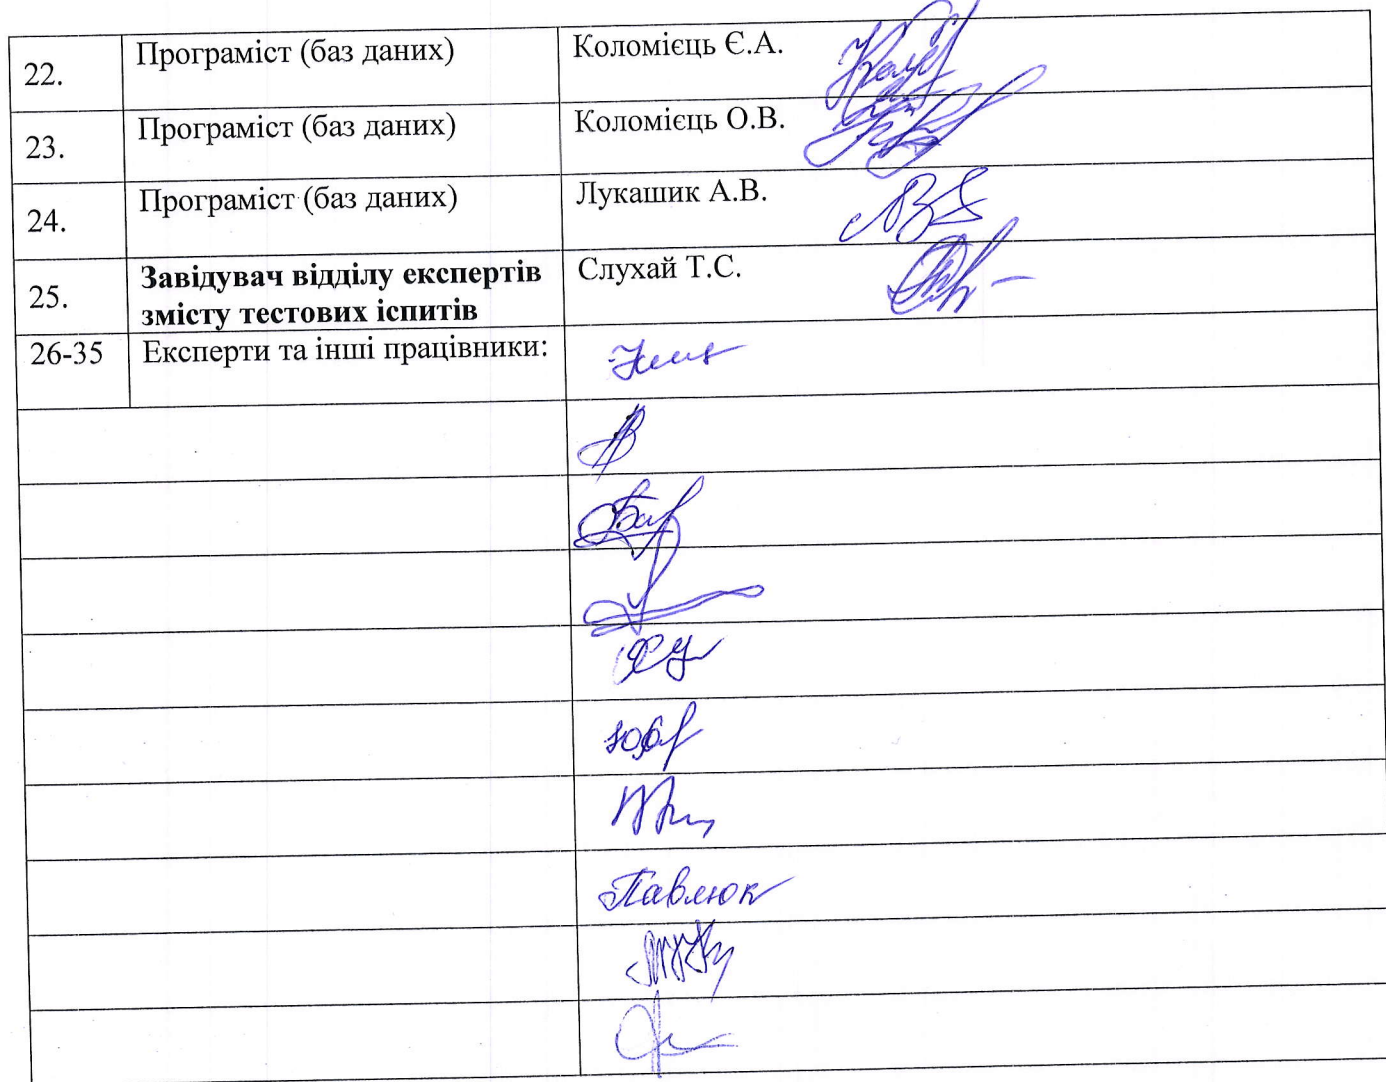 22. Програміст (баз даних) Коломієць Є.А.
23. Програміст (баз даних) Коломієць О.В.
24. Програміст (баз даних) Лукашик А.В.
25. Завідувач відділу експертів Слухай Т.С.
змісту тестових іспитів
26-35 Експерти та інші працівники:
Павлюк